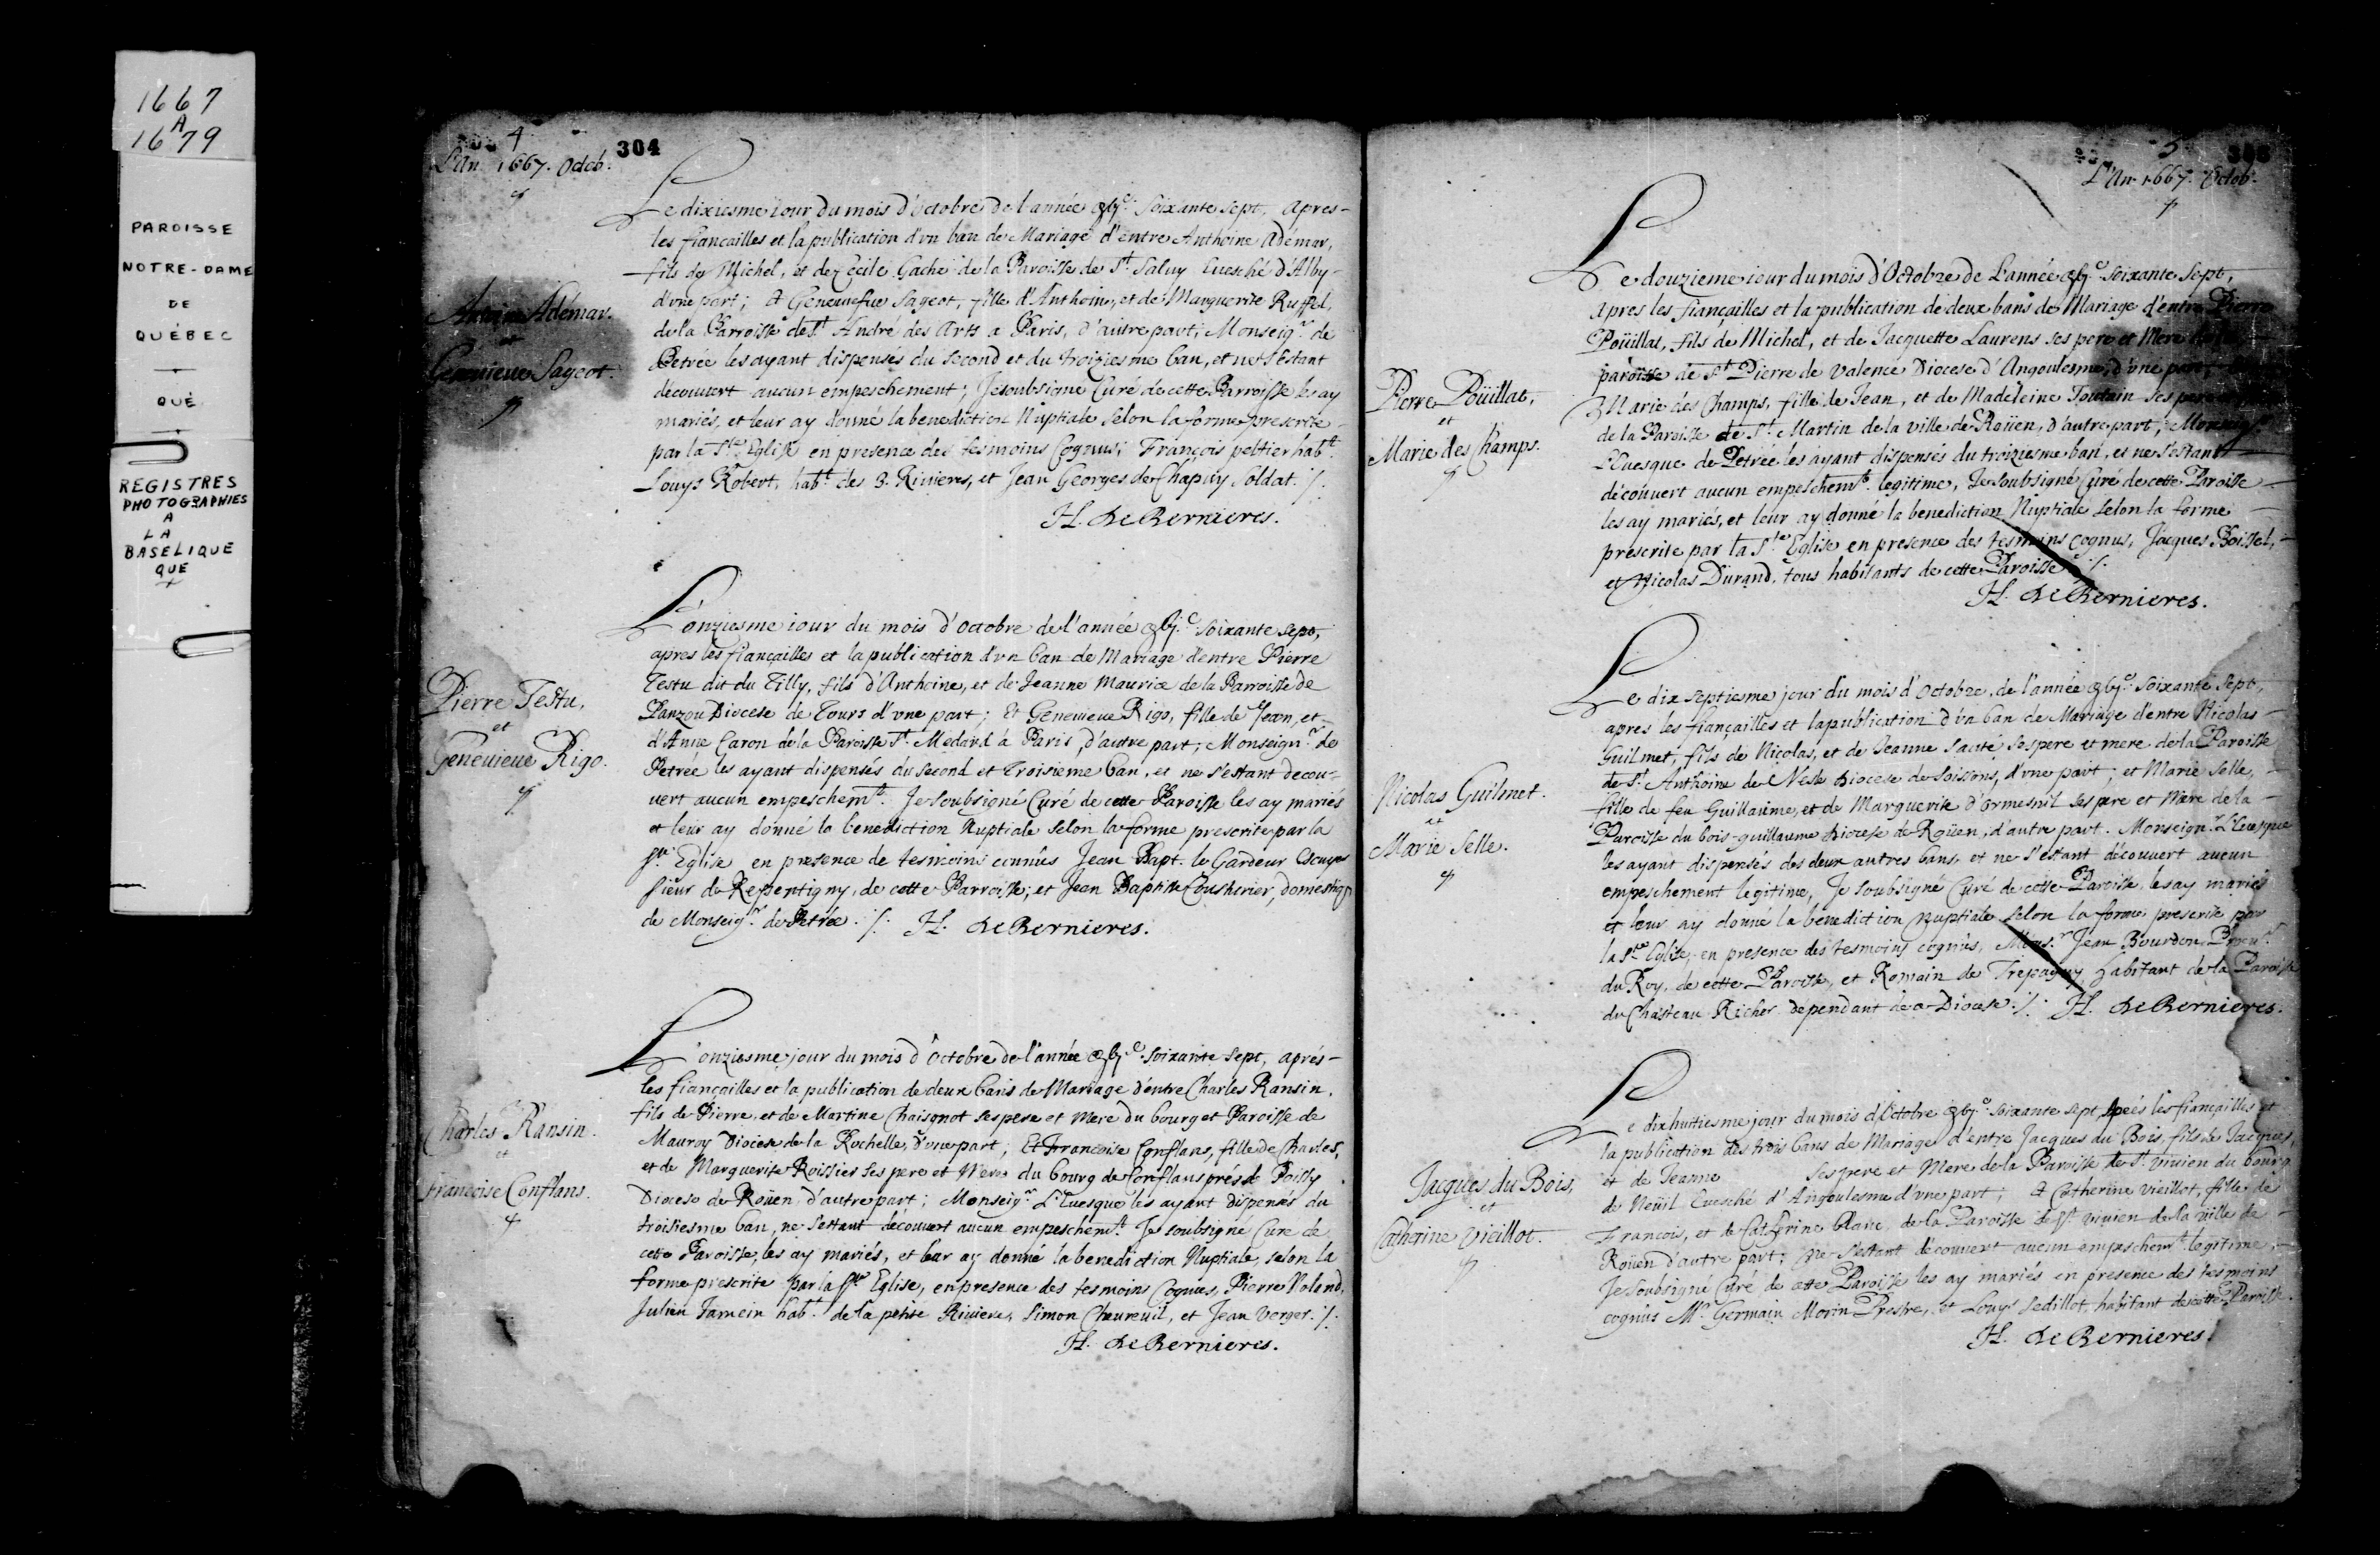 1667
A
1679
PAROISSE
NOTRE-DAME
DE
QUÉBEC
QUÉ
REGISTRES
PHOTOGRAPHIES
A
LA
BASELIQUE
QUE
4
304
L'An 1667. Octob.
Antoine Adémar.
et
Geneuieue Sageot.
Le dixiesme iour du mois d'Octobre de l'année gbj.c soixante sept, apres
les fiancailles et la publication d'vn ban de Mariage d'entre Anthoine Adémar,
fils de Michel, et de Cecile Gache de la Paroisse de St. Saluy Euesché d'Alby
d'vne part; Et Geneuiefue Sageot, fille d'Anthoine, et de Marguerite Ruffel,
de la Parroisse de St. André des Arts a Paris, d'autre part; Monseigr. de
Petrée les ayant dispensés du second et du troiziesme ban, et ne s'estant
decouuert aucun empeschement; Je soubsigné Curé de cette Parroisse les ay
mariés, et leur ay donné la benediction Nuptiale selon la forme prescrite
par la Ste. Eglise en presence des tesmoins Cognus; François peltier habt.
Louys Robert, habt. des 3. Riuieres, et Jean Georges de Chapuy Soldat. /.
H. de Bernieres.
Pierre Testu,
et
Geneuieue Rigo.
L'onziesme iour du mois d'Octobre de l'année gbj.c soixante sept,
apres les fiançailles et la publication d'vn ban de Mariage d'entre Pierre
Testu dit du Tilly, fils d'Anthoine, et de Jeanne Maurice de la Parroisse de
Panzou Diocese de Tours d'vne part; Et Geneuieue Rigo, fille de Jean, et
d'Anne Caron de la Paroisse St. Medard à Paris, d'autre part; Monseignr. de
Petrée les ayant dispensés du second et Troisieme ban, et ne s'estant decou-
uert aucun empeschemt. Je soubsigné Curé de cette Paroisse les ay mariés
et leur ay donné la benediction Nuptiale selon la forme prescrite par la
Ste. Eglise en presence de tesmoins connûs Jean Bapt. le Gardeur Escuyer
sieur de Repentigny, de cette Parroisse; et Jean Baptiste domestiq
de Monseigr. de Petrée. /. H. de Bernieres.
Charles Ransin.
et
francoise Conflans.
L'onziesme jour du mois d'Octobre de l'année gbj.c soixante sept, aprés
les fiançailles et la publication de deux bans de Mariage d'entre Charles Ransin,
fils de Pierre, et de Martine Chaisgnot ses pere et mere du bourg et Paroisse de
Mauroy Diocese de la Rochelle, d'vne part; Et Francoise Conflans, fille de Charles,
et de Marguerite Roissier ses pere et Mere du bourg de Conflans prés de Poissy
Diocese de Roüen, d'autre part; Monseigr. L'Euesque les ayant dispensés du
troisiesme ban, ne s'estant découuert aucun empeschemt. Je soubsigné Curé de
cette Paroisse, les ay mariés, et leur ay donné la benediction Nuptiale, selon la
forme prescrite par la Ste. Eglise, en presence des tesmoins Cognus, Pierre Noland,
Julien Jamein habt. de la petite Riuiere, Simon Cheureuil, et Jean Verger. /.
H. de Bernieres.
5
L'An 1667. Octob.
Pierre Poüillat,
et
Marie des Champs.
Le douzieme iour du mois d'Octobre de L'année gbj.c soixante sept,
apres les fiançailles et la publication de deux bans de Mariage d'entre Pierre
Poüillat, fils de Michel, et de Jacquette Laurens ses pere et Mere
paroisse de St. Pierre de Valence Diocese d'Angoulesme, d'vne part,
Marie des Champs, fille de Jean, et de Madeleine Toutain ses pere
de la Paroisse de St. Martin de la ville de Roüen, d'autre part; Monseigr.
L'Euesque de Petrée les ayant dispensés du troiziesme ban, et ne s'estant
découvert aucun empeschemt. legitime, Je soubsigné Curé de cette Paroisse
les ay mariés, et leur ay donné la benediction Nuptiale selon la forme
prescrite par la Ste. Eglise en presence des tesmoins cognus, Jacques Boissel,
et Nicolas Durand, tous habitants de cette Paroisse /.
H. de Bernieres.
Nicolas Guilmet.
et
Marie Selle.
Le dix septiesme jour du mois d'Octobre, de l'année gbj.c soixante sept,
apres les fiançailles et la publication d'vn ban de Mariage d'entre Nicolas
Guilmet, fils de Nicolas, et de Jeanne Sauté ses pere et mere de la Paroisse
de St. Anthoine de Nesle Diocese de Soissons, d'vne part; et Marie Selle,
fille de feu Guillaume, et de Marguerite d'Ormesnil ses pere et Mere de la
Paroisse du bois-guillaume Diocese de Roüen, d'autre part. Monseignr. L'Euesque
les ayant dispensés des deux autres bans, et ne s'estant découvert aucun
empeschement legitime, Je soubsigné Curé de cette Paroisse, les ay mariés
et leur ay donné la benediction Nuptiale selon la forme prescrite par
la Ste. Eglise, en presence des tesmoins cognûs, Monsr. Jean Bourdon Procur.
du Roy, de cette Paroisse, et Romain de Trepagny habitant de la Paroisse
du Chasteau Richer dependant de ce Diocese. /. H. de Bernieres.
Jacques du Bois,
et
Catherine Vieillot.
Le dixhuitiesme jour du mois d'Octobre gbj.c soixante sept, Apres les fiançailles et
la publication des trois bans de Mariage d'entre Jacques du Bois, fils de Jacques,
et de Jeanne ses pere et Mere de la Paroisse de St. Viuien du bourg
de Neüil Euesché d'Angoulesme d'vne part; Et Catherine Vieillot, fille de
Francois, et de Catherine Blanc de la Paroisse de St. Viuien de la ville de
Roüen d'autre part; Ne s'estant découvert aucun empeschemt. legitime,
Je soubsigné Curé de cette Paroisse les ay mariés en presence des tesmoins
cognûs Mr. Germain Morin Prestre, et Louys Sedillot habitant de cette Paroisse.
H. de Bernieres.